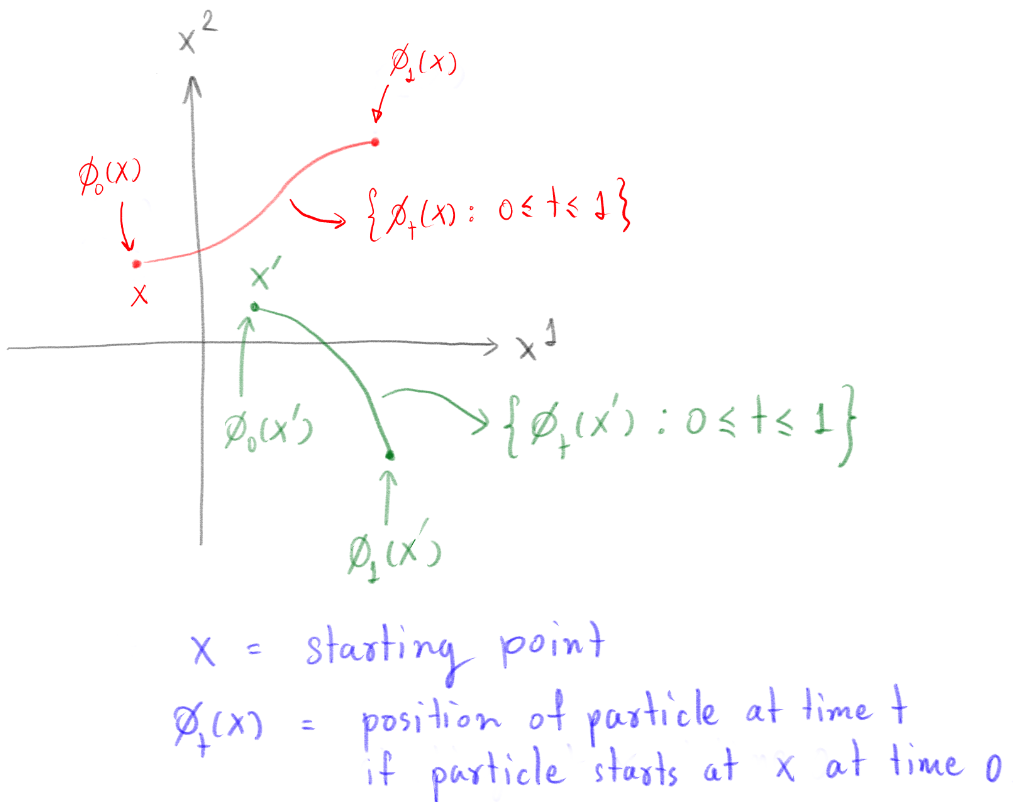 x²
ϕ₁(x)
ϕ₀(x)
{ϕₜ(x) : 0 ≤ t ≤ 1}
x
x′
x¹
ϕ₀(x′)
{ϕₜ(x′) : 0 ≤ t ≤ 1}
ϕ₁(x′)
x = starting point
ϕₜ(x) = position of particle at time t
if particle starts at x at time 0